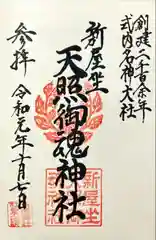 創建二千百余年
式内名神大社
新屋坐
天照御魂神社
参拝
令和元年十一月七日
新屋坐